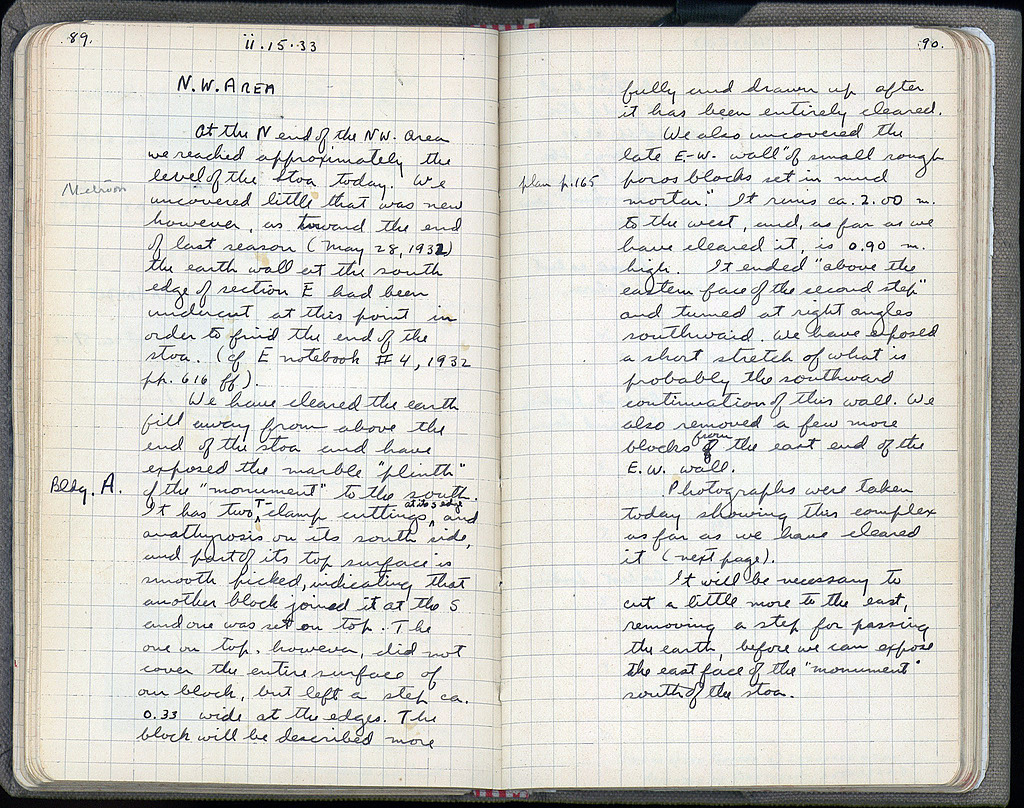 89.
ii.15.33
N.W. AREA
At the N end of the NW. Area
we reached approximately the
level of the stoa today. We
Metroon
uncovered little that was new
however, as toward the end
of last season (May 28, 1932)
the earth wall at the south
edge of section E had been
undercut at this point in
order to find the end of the
stoa. (cf E notebook #4, 1932
pp. 616 ff).
We have cleared the earth
fill away from above the
end of the stoa and have
exposed the marble "plinth"
Bldg. A.
of the "monument" to the south.
It has two T-clamp cuttings at its S edge, and
anathyrosis on its south side,
and part of its top surface is
smooth picked, indicating that
another block joined it at the S
and one was set on top. The
one on top, however, did not
cover the entire surface of
our block, but left a step ca.
0.33 wide at the edges. The
block will be described more
90.
fully and drawn up after
it has been entirely cleared.
We also uncovered the
late E-W. wall "of small rough
plan p.165
poros blocks set in mud
mortar." It runs ca. 2.00 m.
to the west, and, as far as we
have cleared it, is 0.90 m.
high. It ended "above the
eastern face of the second step"
and turned at right angles
southward. We have exposed
a short stretch of what is
probably the southward
continuation of this wall. We
also removed a few more
blocks from the east end of the
E.W. wall.
Photographs were taken
today showing this complex
as far as we have cleared
it (next page).
It will be necessary to
cut a little more to the east,
removing a step for passing
the earth, before we can expose
the east face of the "monument"
south of the stoa.